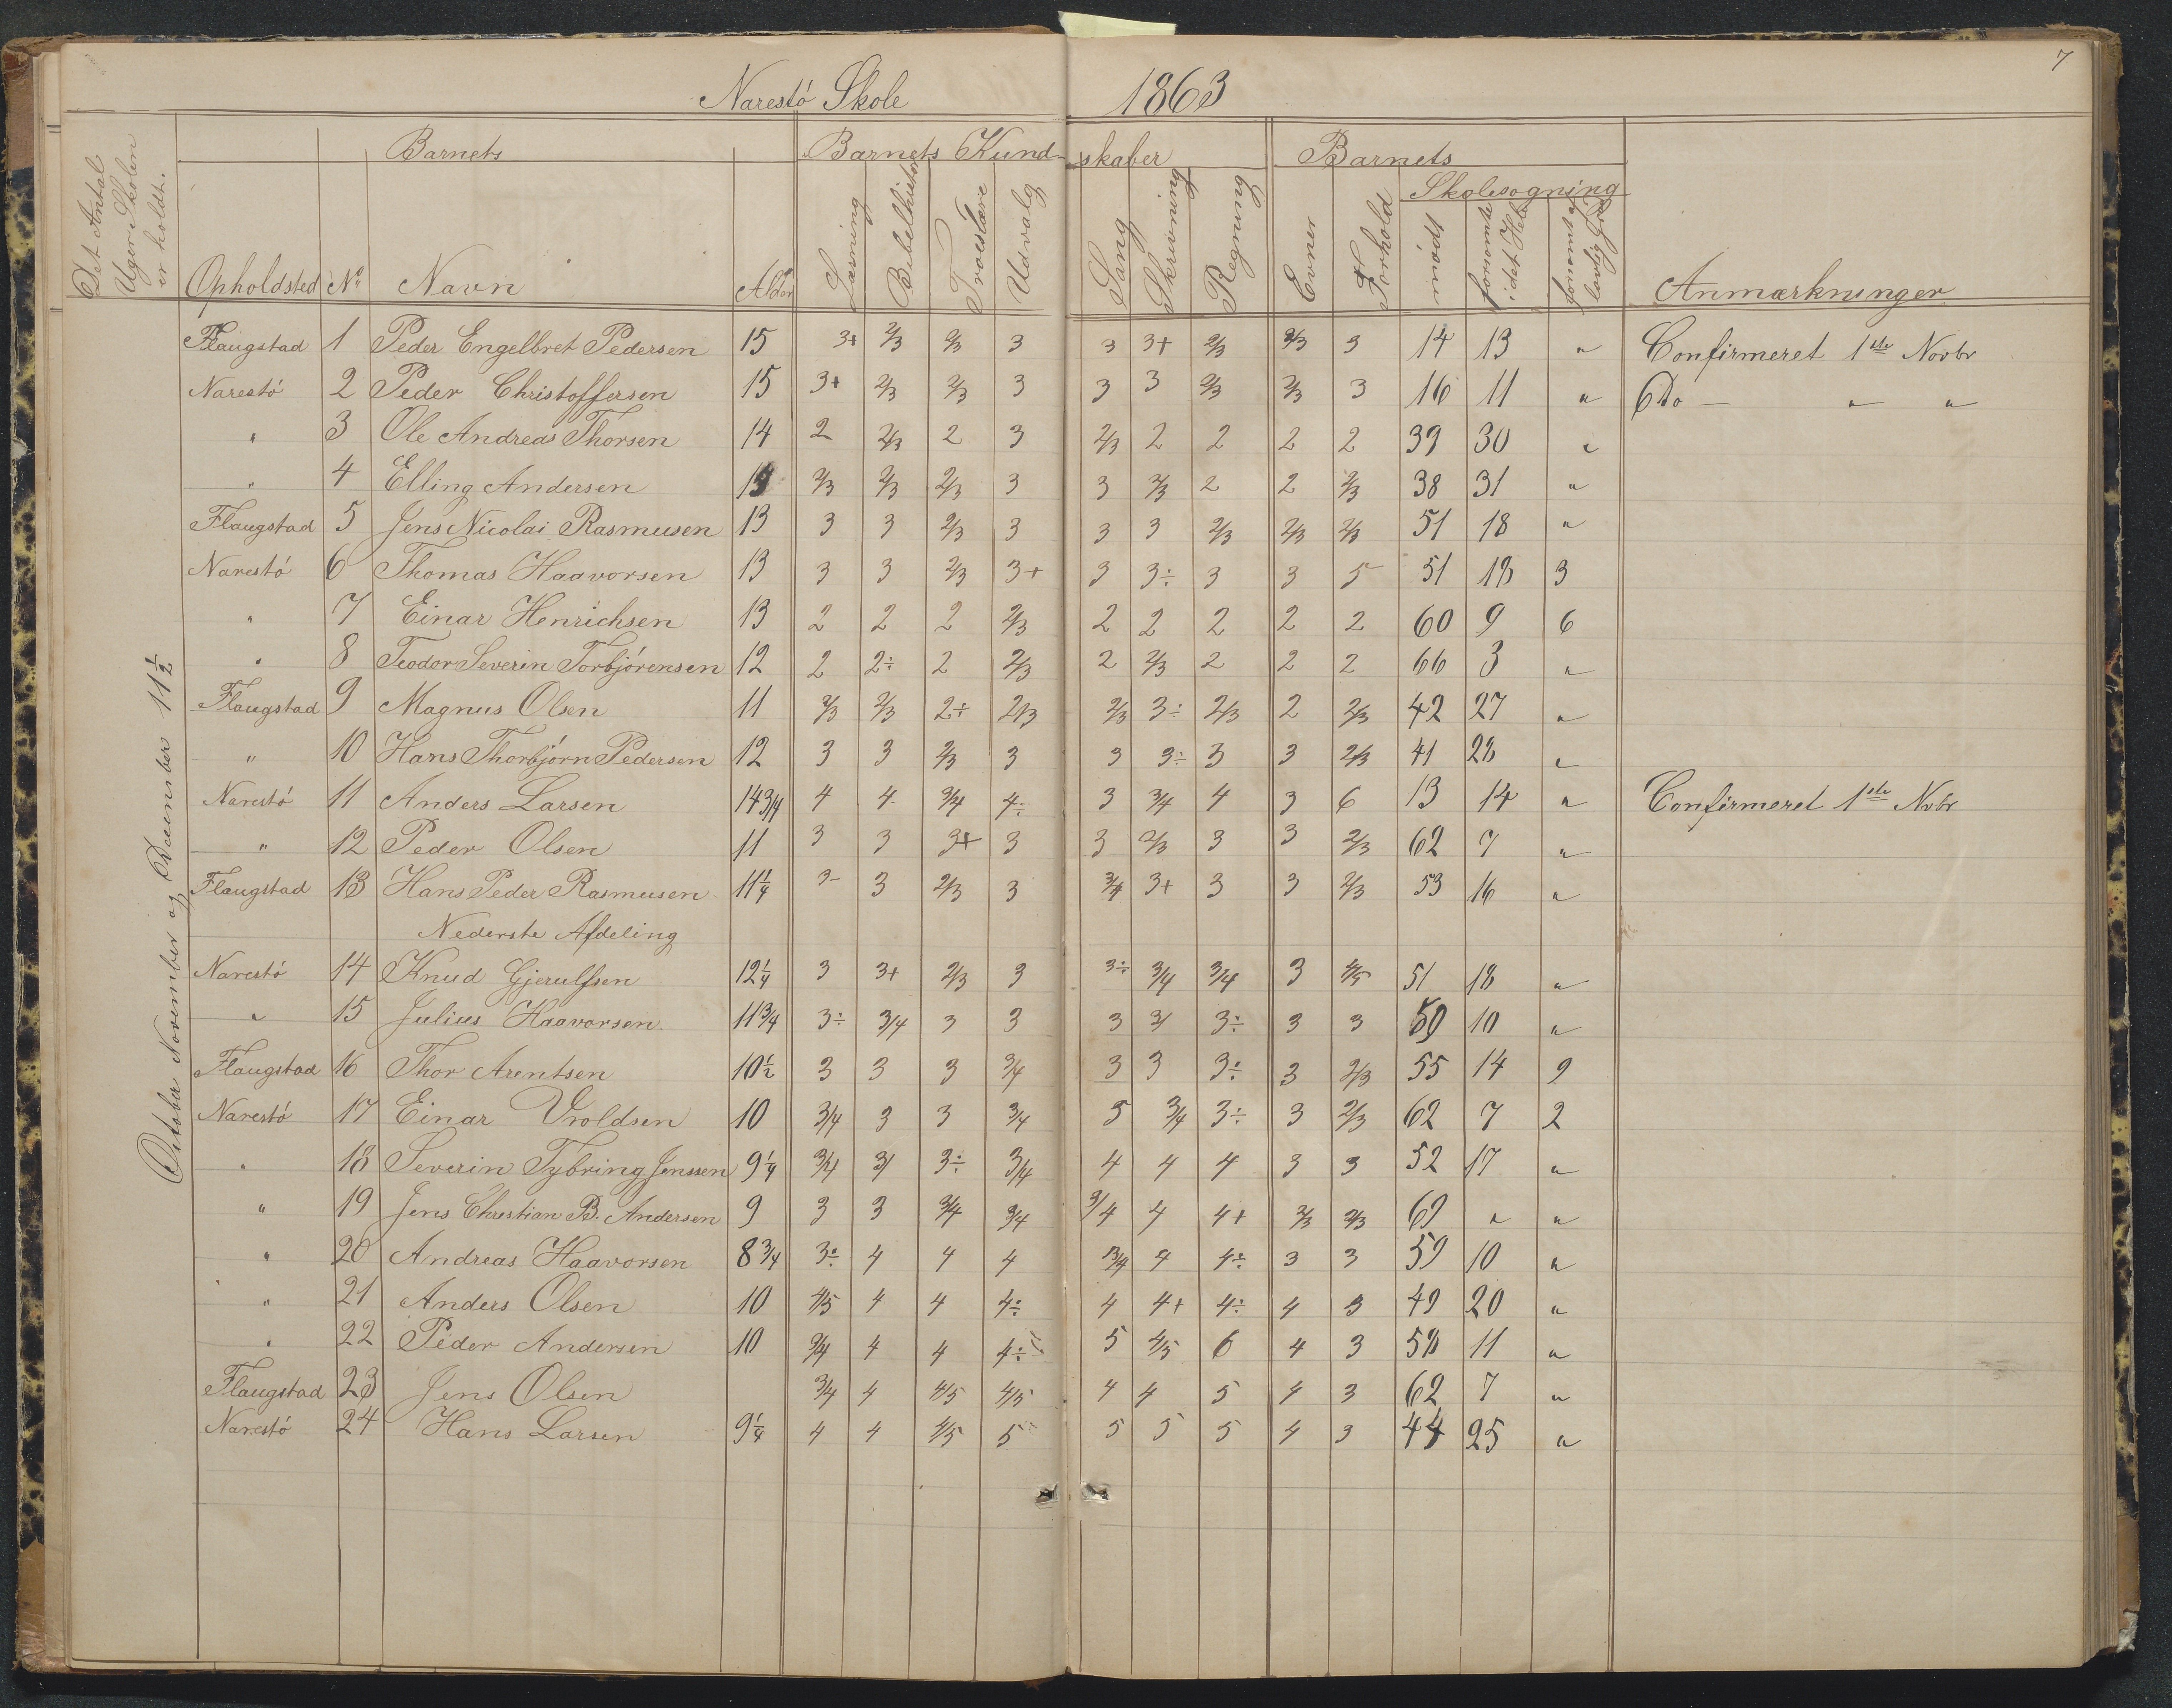 7
Narestó Skole 1863
Det Antal Uger Skolen er holdt.
Barnets
Barnets Kundskaber
Barnets
Skolesøgning
Opholdsted No Navn Alder Læsning Bibelhistorie Troeslære Udvalg Sang Skrivning Regning Evner Forhold mødt forsømt i det Hele forsømt af lovlig Grund Anmærkninger
October November og December 11 1/2
Flaugstad 1 Peder Engelbret Pedersen 15 3+ 2/3 2/3 3 3 3+ 2/3 2/3 3 14 13 " Confirmeret 1ste Novbr
Narestó 2 Peder Christoffersen 15 3+ 2/3 2/3 3 3 3 2/3 2/3 3 16 11 " Do — " "
" 3 Ole Andreas Thorsen 14 2 2/3 2 3 2/3 2 2 2 2 39 30 "
" 4 Elling Andersen 2/3 2/3 2/3 3 3 2/3 2 2 2/3 38 31 "
Flaugstad 5 Jens Nicolai Rasmusen 13 3 3 2/3 3 3 3 2/3 2/3 2/3 51 18 "
Narestó 6 Thomas Haavorsen 13 3 3 2/3 3+ 3 3÷ 3 3 5 51 18 3
" 7 Einar Henrichsen 13 2 2 2 2/3 2 2 2 2 2 60 9 6
" 8 Teodor Severin Torbjórensen 12 2 2÷ 2 2/3 2 2/3 2 2 2 66 3 "
Flaugstad 9 Magnus Olsen 11 2/3 2/3 2÷ 2/3 2/3 3÷ 2/3 2 2/3 42 27 "
" 10 Hans Thorbjórn Pedersen 12 3 3 2/3 3 3 3÷ 3 3 2/3 41 28 "
Narestó 11 Anders Larsen 14 3/4 4 4 3/4 4÷ 3 3/4 4 3 6 13 14 " Confirmeret 1ste Nvbr
" 12 Peder Olsen 11 3 3 3+ 3 3 2/3 3 3 2/3 62 7 "
Flaugstad 13 Hans Peder Rasmusen 11 1/4 3- 3 2/3 3 3/4 3+ 3 3 2/3 53 16 "
Nederste Afdeling
Narestó 14 Knud Gjerulfsen 12 1/4 3 3+ 2/3 3 3÷ 3/4 3/4 3 4/5 51 18 "
" 15 Julius Haavorsen 11 3/4 3÷ 3/4 3 3 3 3/ 3÷ 3 3 59 10 "
Flaugstad 16 Thor Arentsen 10 1/2 3 3 3 3/4 3 3 3÷ 3 2/3 55 14 9
Narestó 17 Einar Vroldsen 10 3/4 3 3 3/4 5 3/4 3÷ 3 2/3 62 7 2
" 18 Severin Tybring Jenssen 9 1/4 3/4 3/ 3÷ 3/4 4 4 4 3 3 52 17 "
" 19 Jens Christian B. Andersen 9 3 3 3/4 3/4 3/4 4 4+ 2/3 2/3 69 " "
" 20 Andreas Haavorsen 8 3/4 3÷ 4 4 4 3/4 4 4÷ 3 3 59 10 "
" 21 Anders Olsen 10 4/5 4 4 4÷ 4 4+ 4÷ 4 3 49 20 "
" 22 Peder Andersen 10 3/4 4 4 4÷ 5 4/5 6 4 3 58 11 "
Flaugstad 23 Jens Olsen 3/4 4 4/5 4/5 4 4 5 4 3 62 7 "
Narestó 24 Hans Larsen 9 1/4 4 4 4/5 5 5 5 5 4 3 44 25 "